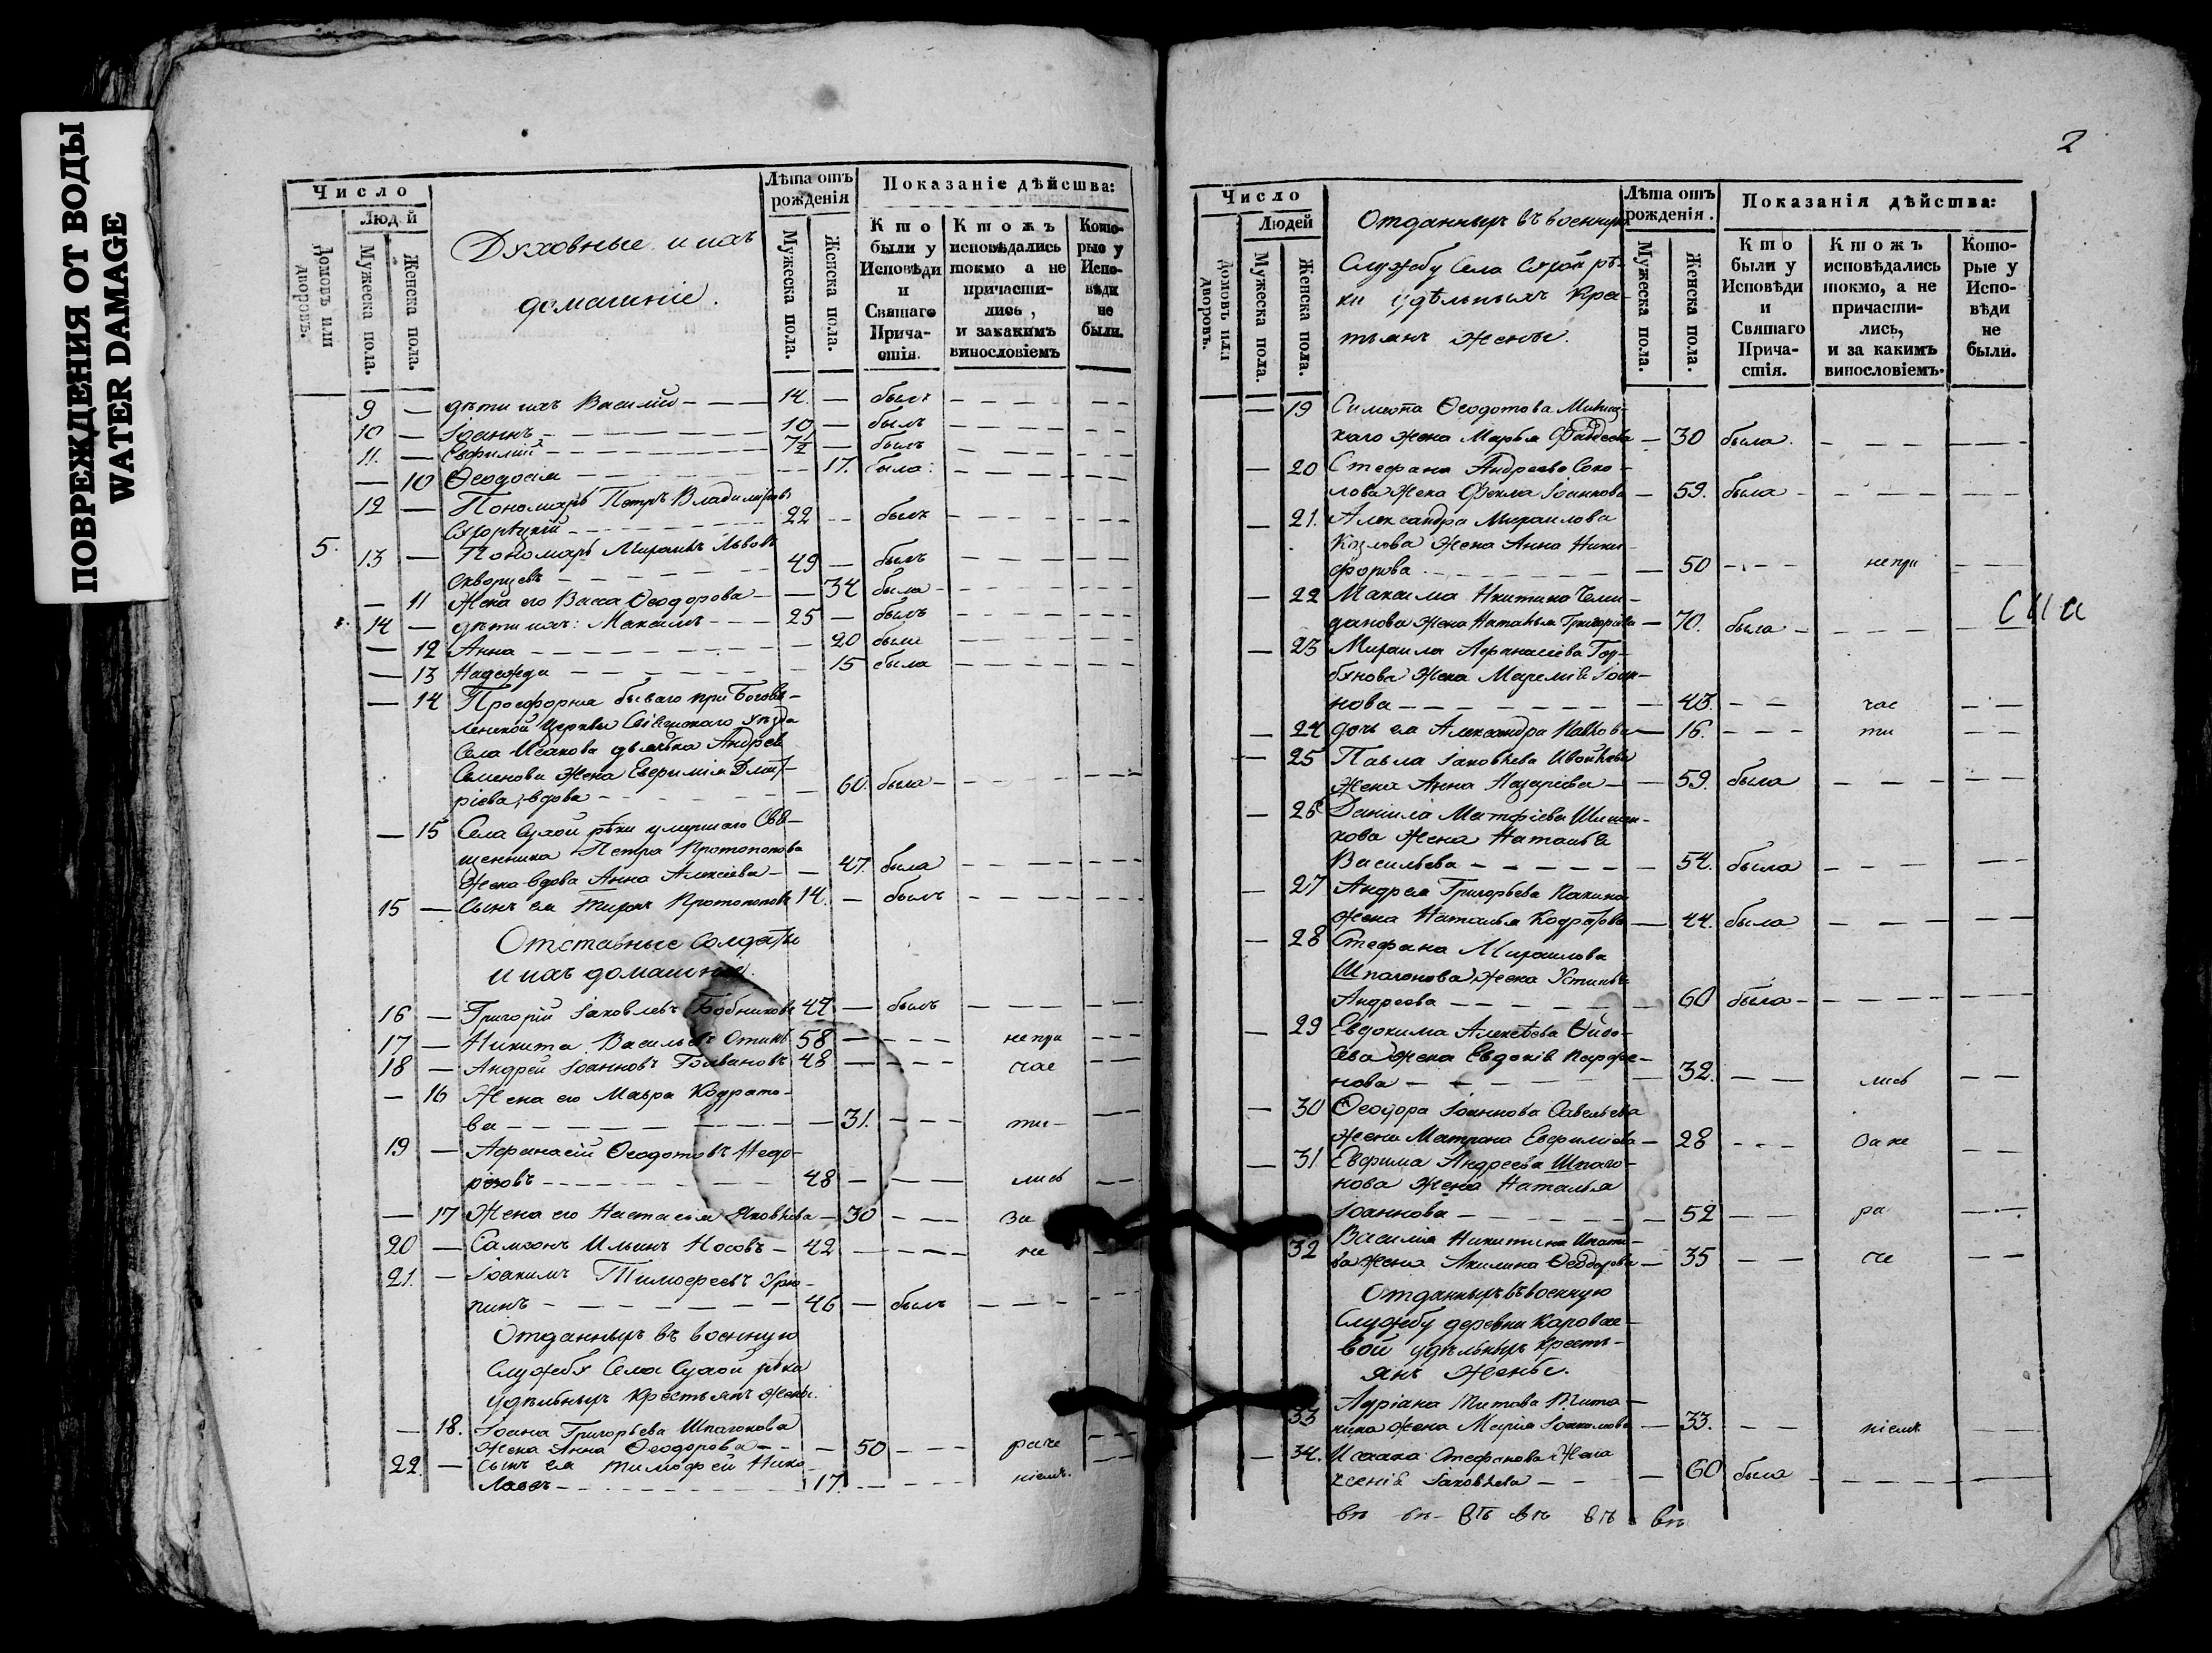 ПОВРЕЖДЕНИЯ ОТ ВОДЫ
WATER DAMAGE
Число
Людей
Домовъ или дворовъ.
Мужеска пола.
Женска пола.
Духовные и ихъ
домашніе.
Лѣта отъ
рожденія
Мужеска пола.
Женска пола.
Показаніе дѣйства:
Кто
были у
Исповѣди
и
Святаго
Прича-
стія.
Ктожъ
исповѣдались
токмо а не
причасти-
лись,
и закакимъ
винословіемъ
Кото-
рые у
Испо-
вѣди
не
были.
9 — дѣти ихъ Василій — 14. — былъ
10 — Іоаннъ — 10 — былъ
11. — Евфимій — 7½ — былъ
— 10 Ѳеодосія — 17. была:
12 — Пономарь Петръ Владиміровъ
22 — былъ
5. 13 — Пономарь Михаилъ Львовъ
Скворцевъ — 49 — былъ
— 11 Жена его Васса Ѳеодорова — 34 была
14 — дѣти ихъ: Максимъ — 25 — былъ
— 12 Анна — 20 была
— 13 Надежда — 15 была
— 14 Просфорня бываго при Богояв-
ленской Церкви уѣзда
Села дьячка Андрея
Семенова жена Евфимія Дмит-
ріева, вдова — 60. была
— 15 Села Сухой рѣки умершаго Свя-
щенника Петра Протопопова
Жена вдова Анна Алексіева — 47. была
15 — Сынъ ея Тихонъ Протопоповъ 14. — былъ
Отставные Солдаты
и ихъ домашніе.
16 — Григорій Іаковлевъ Бобниковъ 47 — былъ
17 — Никита Васильевъ 58 — не при
18 — Андрей Іоанновъ Голвановъ 48 — час
— 16 Жена его Мавра Кодрато-
ва — 31. — ти-
19 — Афанасій Ѳеодотовъ Недо-
рѣзовъ — 48 — лись
— 17 Жена его Настасья Яковлева — 30 — за
20 — Самсонъ Ильинъ Носовъ — 42 — не
21. — Іоакимъ Тимофеевъ Урю-
пинъ — 46 — былъ
Отданныхъ въ военную
Службу Села Сухой рѣки
удѣльныхъ крестьянъ жены.
— 18. Іоана Григорьева Шпагонова
Жена Анна Ѳеодорова — 50 — раче
22. — Сынъ ея Тимофей Нико-
лаевъ — 17. — ніемъ.
2
Число
Людей
Домовъ или дворовъ.
Мужеска пола.
Женска пола.
Отданныхъ въ военную
Службу Села Сухой рѣ-
ки удѣльныхъ кре-
тьянъ жены.
Лѣта отъ
рожденія.
Мужеска пола.
Женска пола.
Показанія дѣйства:
Кто
были у
Исповѣди
и
Святаго
Прича-
стія.
Ктожъ
исповѣдались
токмо, а не
причасти-
лись,
и за какимъ
винословіемъ.
Кото-
рые у
Испо-
вѣди
не
были.
— 19 Симеона Ѳеодотова
жена Марья Фадеева — 30 была.
— 20 Стефана Андреева Соко-
лова жена Фекла Іоаннова — 59. была
— 21. Александра Михаилова
Козлова жена Анна Ники-
форова — 50 — не при
— 22 Максима Никитина Чемо-
данова жена Наталья Григорьева — 70. была
сиа
— 23 Михаила Афанасіева Гор-
бунова жена Мареміа Іоан-
нова — 43. — час
— 24 дочь ея Александра Павлова — 16. — ти
— 25 Павла Іаковлева
жена Анна Назаріева — 59. была
— 26 Даніила Матфіева
жена Наталья
Васильева — 54. была
— 27 Андрея Григорьева Пахина
жена Наталья Кодратова — 44. была
— 28 Стефана Михаилова
Шпагонова жена Устинья
Андреева — 60 была
— 29 Евдокима Алексѣева Ѳадо-
сева жена Евдокія Парфе-
нова — 32. — лись
— 30 Ѳеодора Іоаннова Савельева
жена Матрона Евфиміева — 28 — за не
— 31. Евфима Андреева Шпаго-
нова жена Наталья
Іоаннова — 52 — ра
32 Василія Никитина
жена Акилина Ѳеодорова — 35 — че
Отданныхъ въ военную
Службу деревни Каровае-
вой удѣльныхъ кресть-
янъ жены.
33 Адріана Титова Тита-
кина жена Марія Іоакимова — 33. — ніемъ
— 34. Исаака Стефанова жена
Ксенія Іаковлева — 60 была
въ въ въ въ въ въ